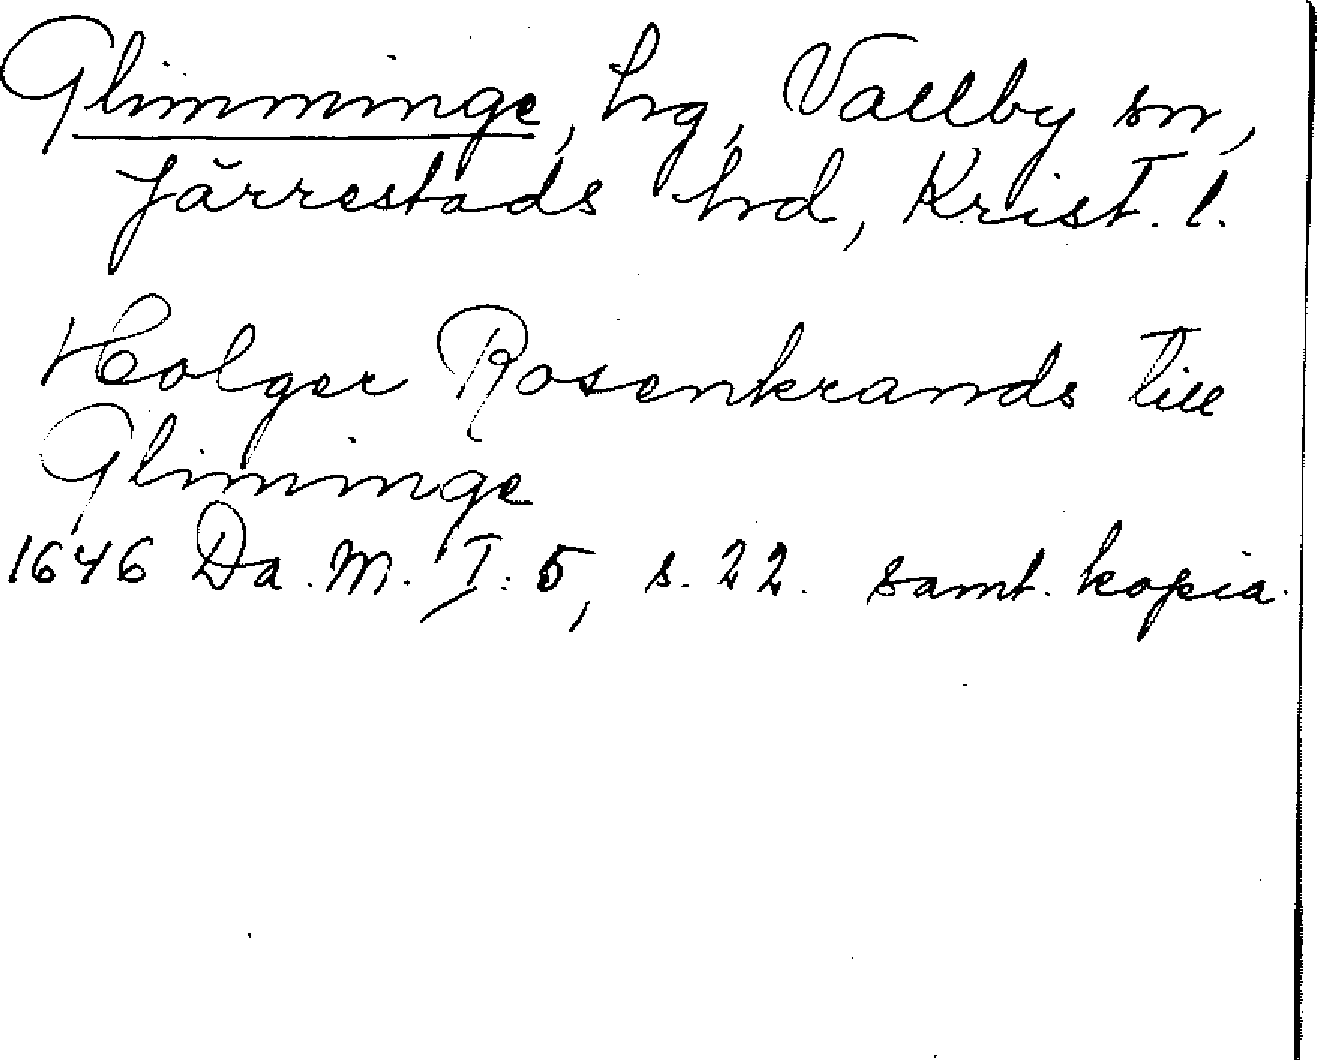 Glimminge, hg, Vallby sn,
Järrestads hd, Krist. l.
Holger Rosenkrands till
Gliminge
1646 Da. M. I: 5, s. 22. samt. kopia.